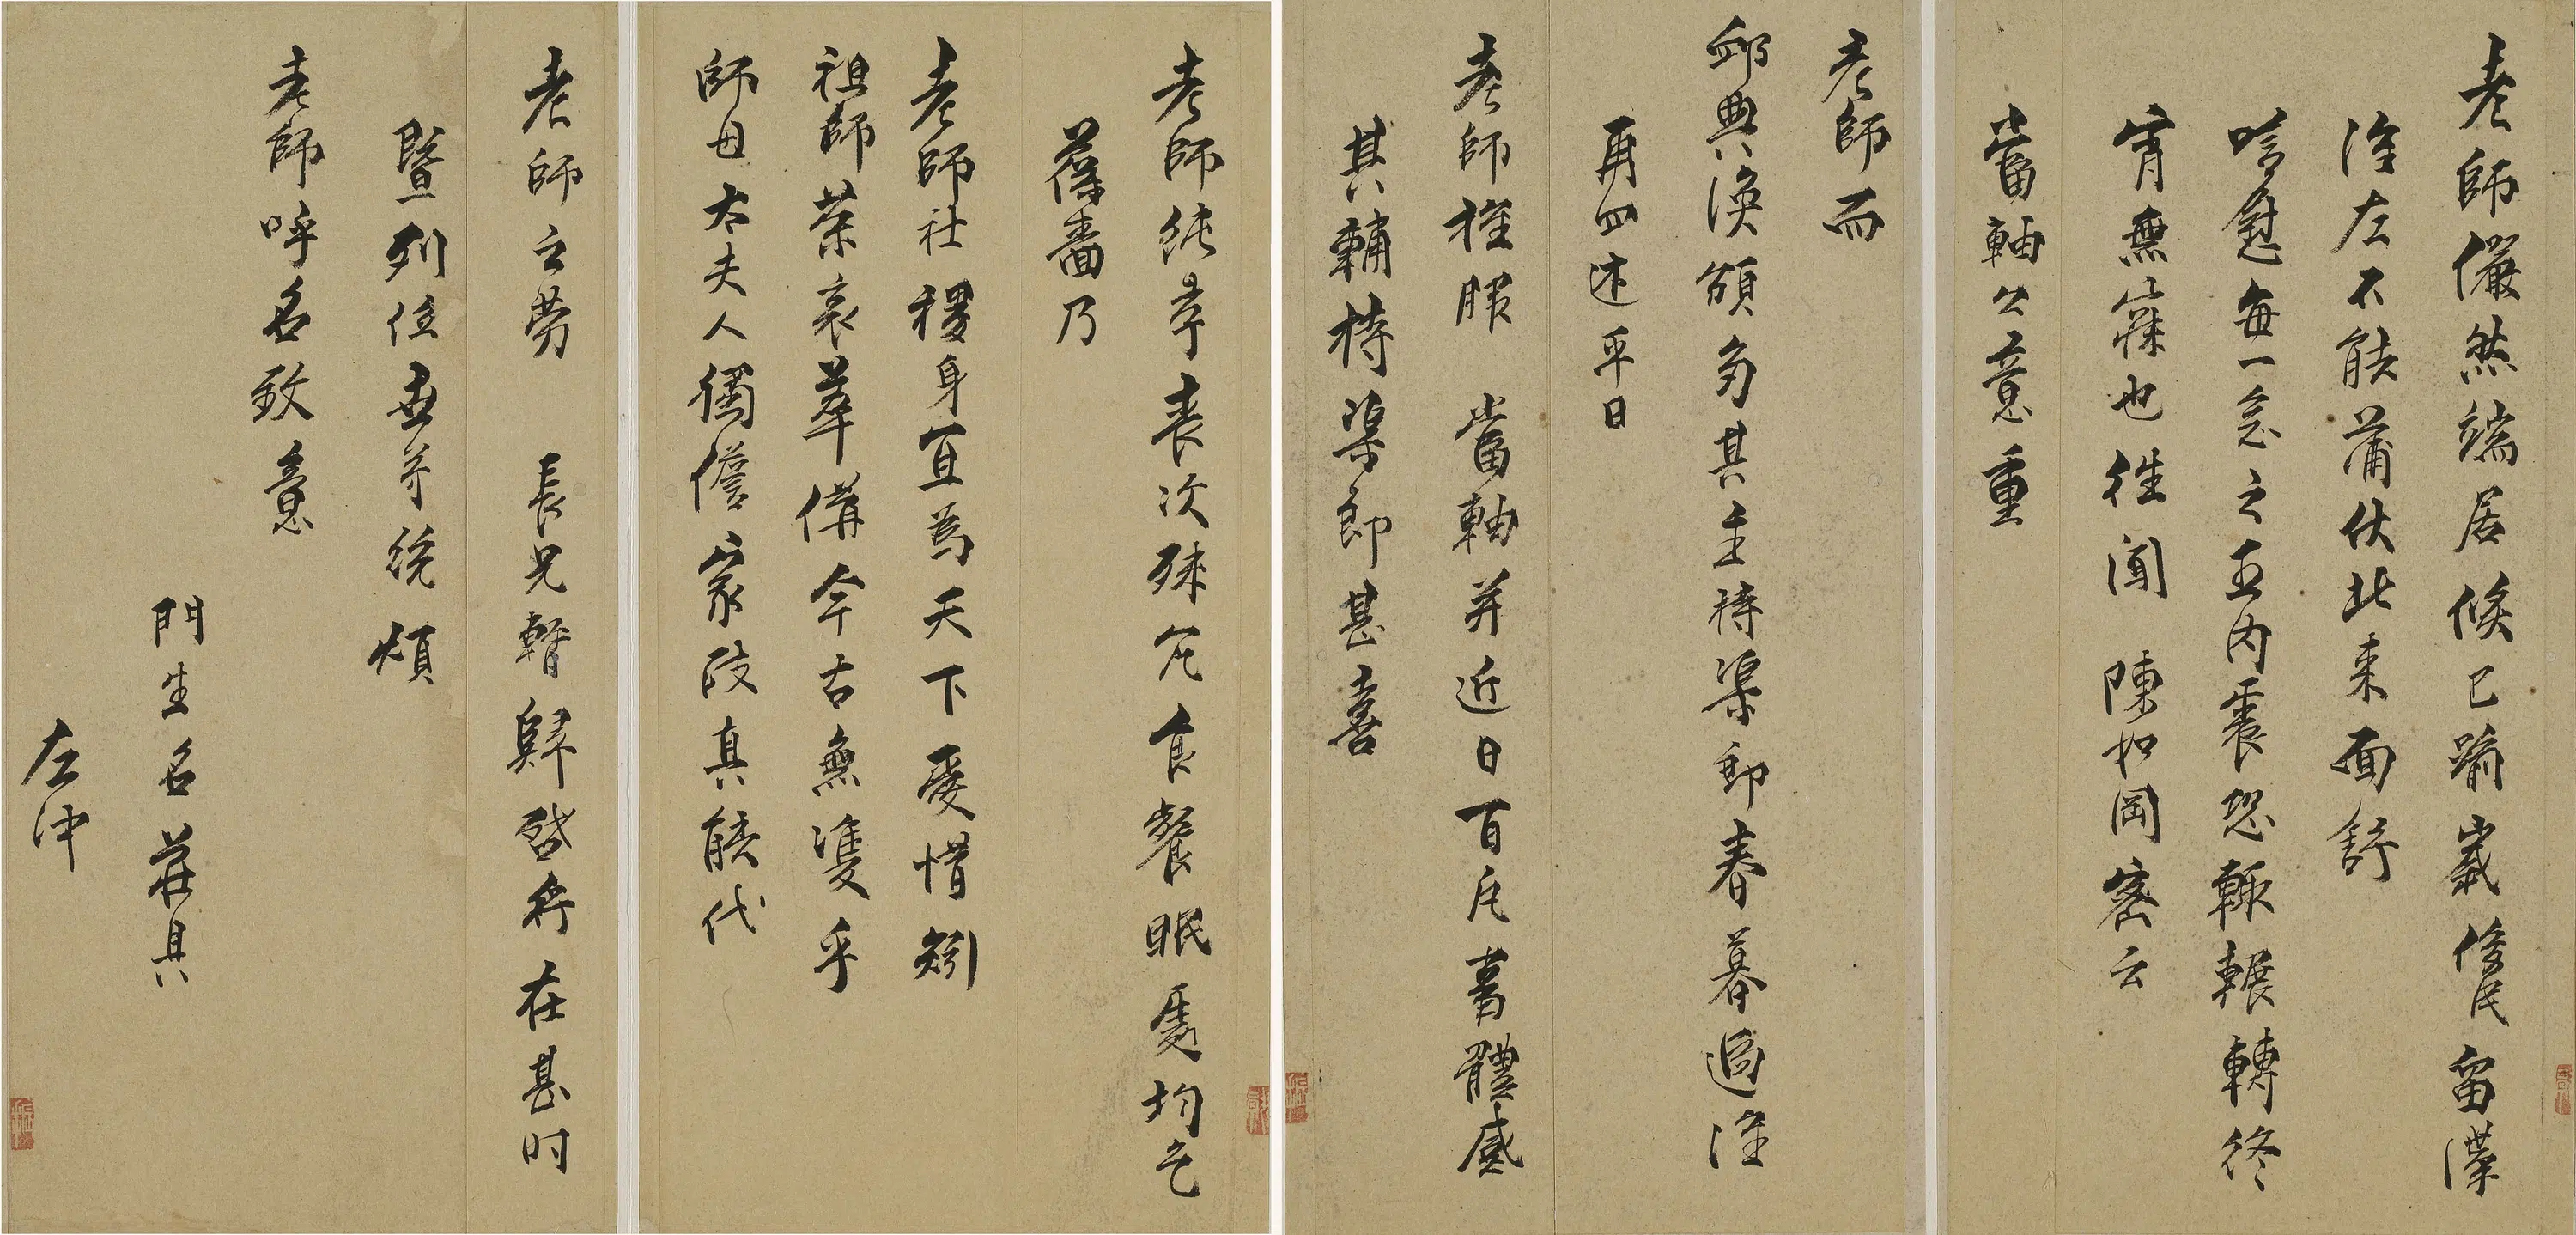 老師儼然端居倏已踰歲俊民留滯
淮左不能蒲伏北來面舒
唁慰每一念之五內震恐輒輾轉終
宵無寐也往聞 陳如岡密云
當軸公意重
老師而
卹典渙頒多其主持渠即春暮過淮
再四述平日
老師推服 當軸并近日百凡書體感
其輔持渠郎甚喜
老師純孝喪次殊冗食餐眠處均乞
葆嗇乃
老師社稷身宜為天下愛惜矧
祖師榮哀萃備今古無雙乎
師母太夫人獨儋家政真能代
老師之勞 長兄暫歸啓行在甚时
暨列位世兄統煩
老師呼名致意
門生名莊具
左沖